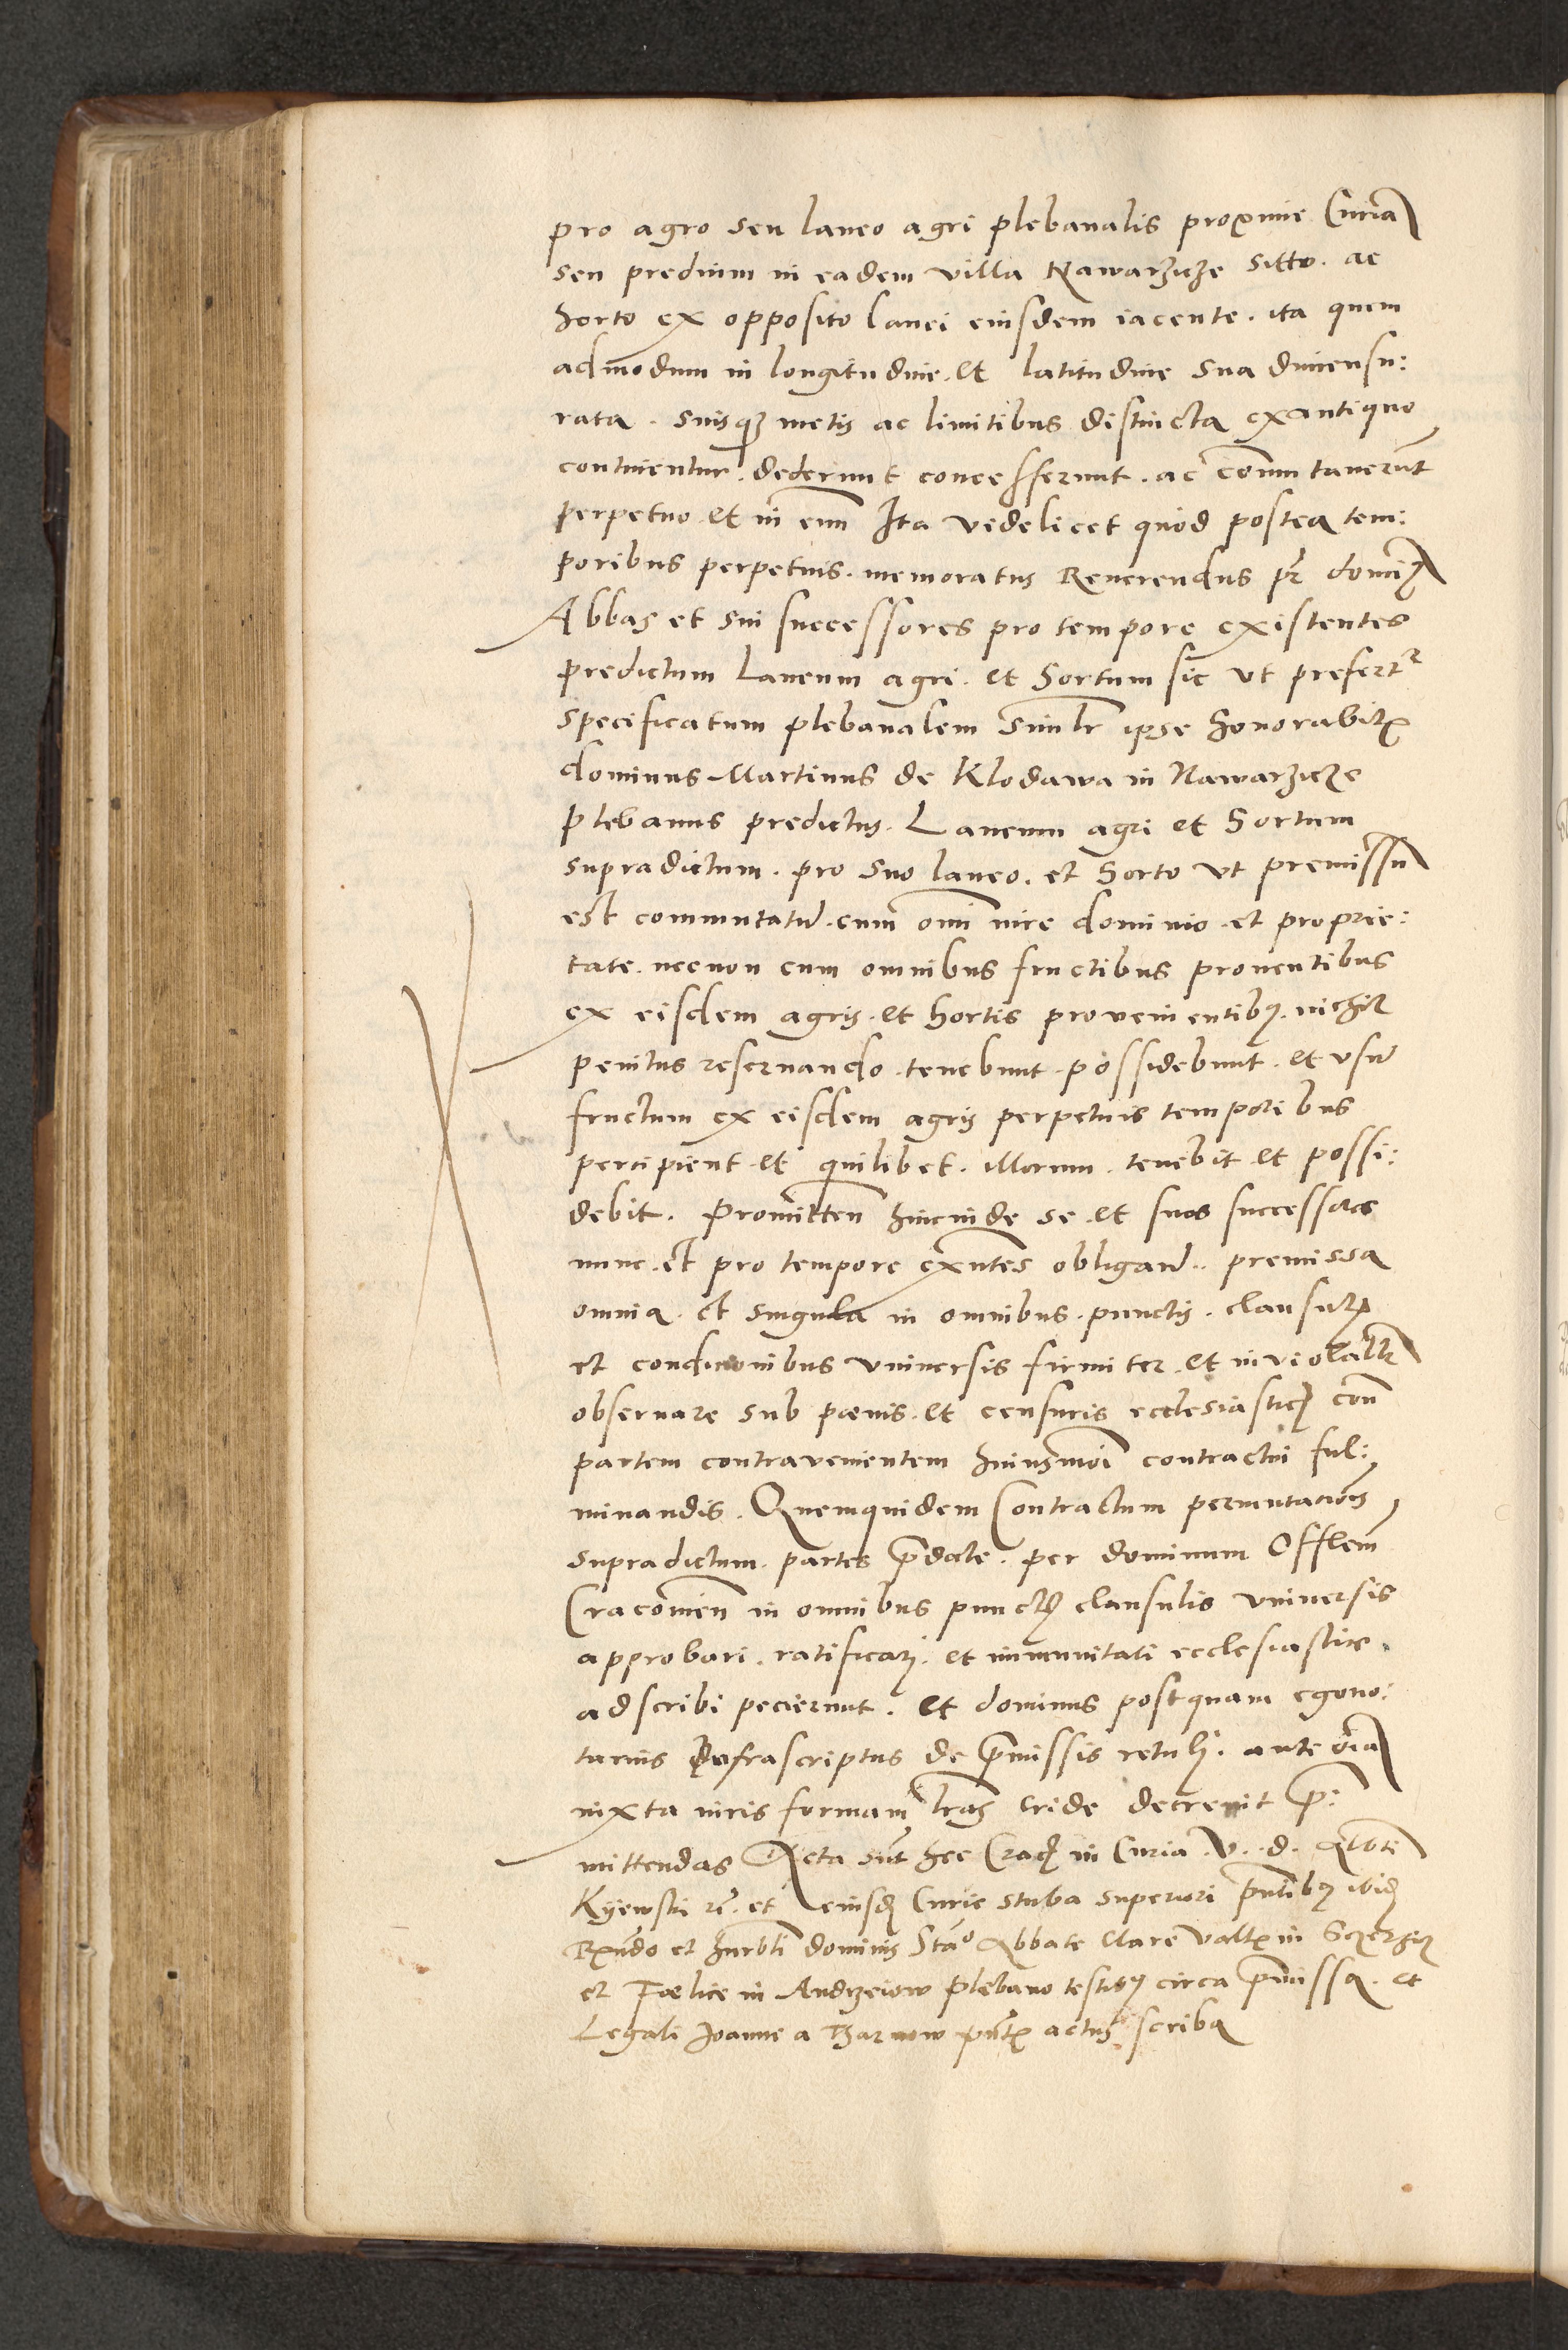 pro agro seu laneo agri plebanalis proxime Curiā
seu predium in eadem villa Nawarzicze sitto. ac
horto ex opposito lanei eiusdem iacente. ita quem
admodum in longitudine. et latitudine sua dimensu:
rata. suisqȝ metis ac limitibus distincta exantiquo
continentur. dederunt concesserunt. ac cōmutauerūt
perpetuo et in eūm Ita videlicet quod postea tem:
poribus perpetuis. memoratus Reuerendus pr̄ domin9
Abbas et sui successores pro tempore existentes
predictum Laneum agri. et Hortum sic vt prefertr
specificatum plebanalem Simlr̄ ipse honorabilꝭ
dominus Martinus de Klodawa in Nawarzicze
plebanus predictus. Laneum agri et Hortum
supradictum. pro suo laneo. et Horto vt premissū
est commutatū. cum om̄i iure dominio. et proprie:
tate. necnon cum omnibus fructibus prouentibus
ex eisdem agris. et hortis prouenientibȝ. nichil
penitus reseruando. tenebunt. possidebunt. et vsū
fructum ex eisdem agris perpetuis temporibus
percipient. et quilibet. illorum. tenebit et possi:
debit. Promitteñ hincinde se et suos successores
nunc. et pro tempore exn̄tes obligand.. premissa
omnia. et singula in omnibus. punctis. clausulꝭ
et condicionibus vniuersis firmiter. et inviolablr̄
obseruare sub pœnis. et censuris ecclesiasticꝭ con̄
partem contravenientem huiusmōi contractui ful:
minandis. Quemquidem Contractum permutationis
supradictum. partes p̄dicte. per dominum Offlem̄
Cracouien̄ in omnibus punctꝭ clausulis vniuersis
approbari. ratificari. et immunitati ecclesiastice.
adscribi pecierunt. Et dominus postquam egono:
tarius Infrascriptus de p̄missis retuli. ante oīa
iuxta iuris formam lrās cride decreuit p̄:
mittendas Acta sūt hec Crac̄ in Curia. V. d. Alb̄ti
Kyiewski rc̄. et eiusd̄ Curie stuba superiori pn̄tibȝ ibid̄
Rn̄do et hnrbli dominis Stāo Abbate Clare vallꝭ in Sczerzicz
et Fœlice in Andrzeiow plebano testibȝ circa p̄missa. et
Legali Joanne a Tharnow pn̄tꝭ actus scriba